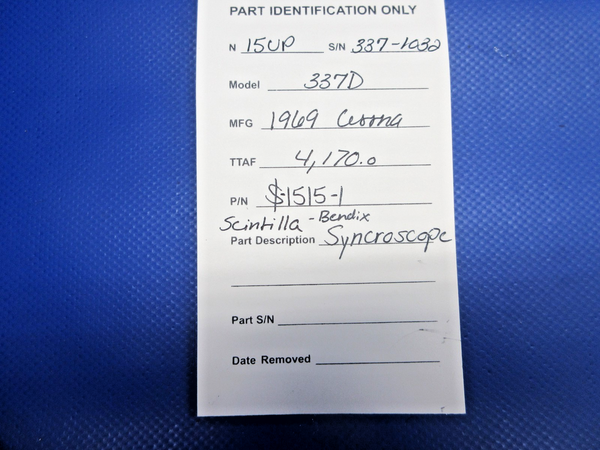 PART IDENTIFICATION ONLY
N 15UP S/N 337-1032
Model 337D
MFG 1969 Cessna
TTAF 4,170.0
P/N S-1515-1
Scintilla - Bendix
Part Description Syncroscope
Part S/N
Date Removed